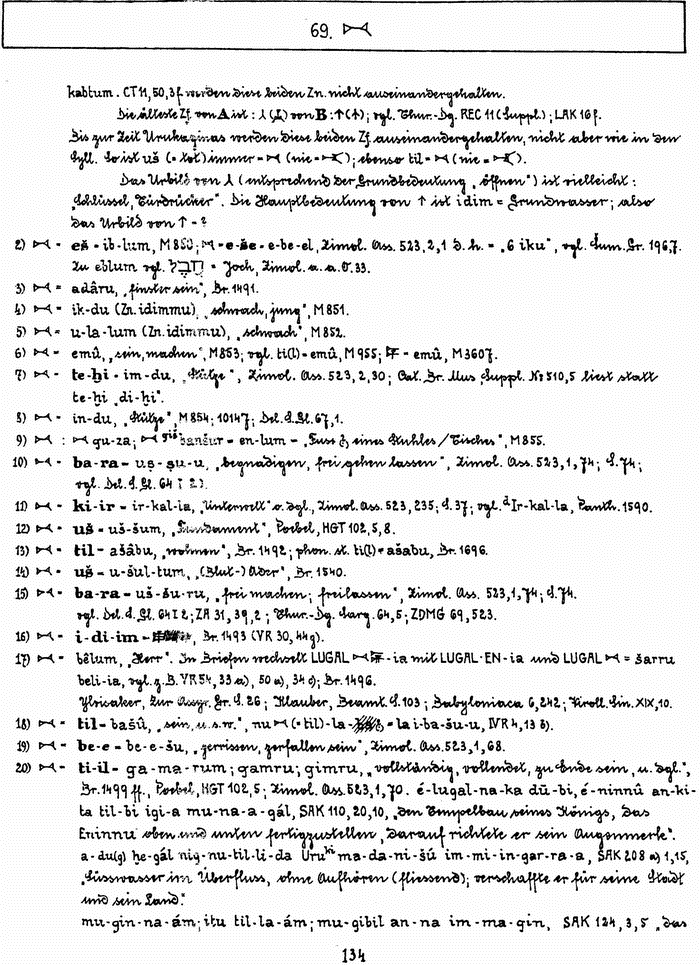 69. 𒁁
kabtum. CT 11, 50, 3f werden diese beiden Zn. nicht auseinandergehalten.
Die älteste Zf. von A ist: von B: ; vgl. Thur.-Dg. REC 11 (Suppl.); LAK 16f.
Bis zur Zeit Urukaginas werden diese beiden Zf. auseinandergehalten, nicht aber wie in den
Syll. So ist uš (= tot) immer = 𒁁 (nie = ); ebenso til = 𒁁 (nie = ).
Das Urbild von (entsprechend der Grundbedeutung „öffnen") ist vielleicht:
„Schlüssel, Türdrücker". Die Hauptbedeutung von ↑ ist idim = Grundwasser; also
das Urbild von ↑ = ?
2) 𒁁 = eš - ib-lum, M 850; 𒁁 = e-še - e-be-el, Zimol. Ass. 523, 2, 1 d. h. = „6 iku", vgl. Šum. Gr. 196, 7.
Zu eblum vgl. = Joch, Zimol. a. a. O. 33.
3) 𒁁 = adâru, „finster sein", Br. 1491.
4) 𒁁 = ik-du (Zn. idimmu), „schwach, jung", M 851.
5) 𒁁 = u-la-lum (Zn. idimmu), „schwach", M 852.
6) 𒁁 = emû, „sein, machen", M 853; vgl. ti(l) = emû, M 955; = emû, M 3607.
7) 𒁁 = te-ḫi - im-du, „Stütze", Zimol. Ass. 523, 2, 30; Cat. Br. Mus. Suppl. № 510, 5 liest statt
te-ḫi „di-ḫi".
8) 𒁁 = in-du, „Stütze", M 854; 10147; Del. S. Gl. 67, 1.
9) 𒁁 : 𒁁 gu-za; 𒁁 ᵍⁱˢbanšur = en-lum = „Fuss eines Stuhles / Tisches", M 855.
10) 𒁁 = ba-ra = uṣ-ṣu-u, „begnadigen, frei gehen lassen", Zimol. Ass. 523, 1, 74; S. 74;
vgl. Del. S. Gl. 64 I 2).
11) 𒁁 = ki-ir = ir-kal-la, „Unterwelt" o. dgl., Zimol. Ass. 523, 235; S. 37; vgl. ᵈIr-kal-la, Panth. 1590.
12) 𒁁 = uš = uš-šum, „Fundament", Poebel, HGT 102, 5, 8.
13) 𒁁 = til = ašâbu, „wohnen", Br. 1492; phon. st. ti(l) = ašabu, Br. 1696.
14) 𒁁 = uš = u-šul-tum, „(Blut-) Ader", Br. 1540.
15) 𒁁 = ba-ra = uš-šu-ru, „frei machen; freilassen", Zimol. Ass. 523, 1, 74; S. 74.
vgl. Del. S. Gl. 64 I 2; ZA 31, 39, 2; Thur.-Dg. Sarg. 64, 5; ZDMG 69, 523.
16) 𒁁 = i-di-im = , Br. 1493 (VR 30, 44g).
17) 𒁁 = bêlum, „Herr". In Briefen wechselt LUGAL 𒁁 -ia mit LUGAL·EN-ia und LUGAL 𒁁 = šarru
beli-ia, vgl. z. B. VR 54, 33 a), 50 a), 34 c); Br. 1496.
Ylvisaker, Zur Assyr. Gr. S. 26; Klauber, Beamt. S. 103; Babyloniaca 6, 242; Kiroll. Sin. XIX, 10.
18) 𒁁 = til = bašû, „sein, u. s. w.", nu 𒁁 (= til) - la - = la i-ba-šu-u, IVR 4, 13 b).
19) 𒁁 = be-e = be-e-šu, „zerrissen, zerfallen sein", Zimol. Ass. 523, 1, 68.
20) 𒁁 = ti-il = ga-ma-rum; gamru; gimru, „vollständig, vollendet, zu Ende sein, u. dgl.",
Br. 1499 ff., Poebel, HGT 102, 5; Zimol. Ass. 523, 1, 70. é-lugal-na-ka dū-bi, é-ninnû an-ki-
ta til-bi igi-a mu-na-a-gál, SAK 110, 20, 10, „den Tempelbau seines Königs, das
Eninnu oben und unten fertigzustellen, darauf richtete er sein Augenmerk".
a-du(g) ḫe-gál níg-nu-til-li-da Uruᵏⁱ ma-da-ni-šú im-mi-in-gar-ra-a, SAK 208 a) 1, 15,
„Süsswasser im Überfluss, ohne Aufhören (fliessend); verschaffte er für seine Stadt
und sein Land."
mu-gin-na-ám; itu til-la-ám; mu-gibil an-na im-ma-gin, SAK 124, 3, 5 „das
134